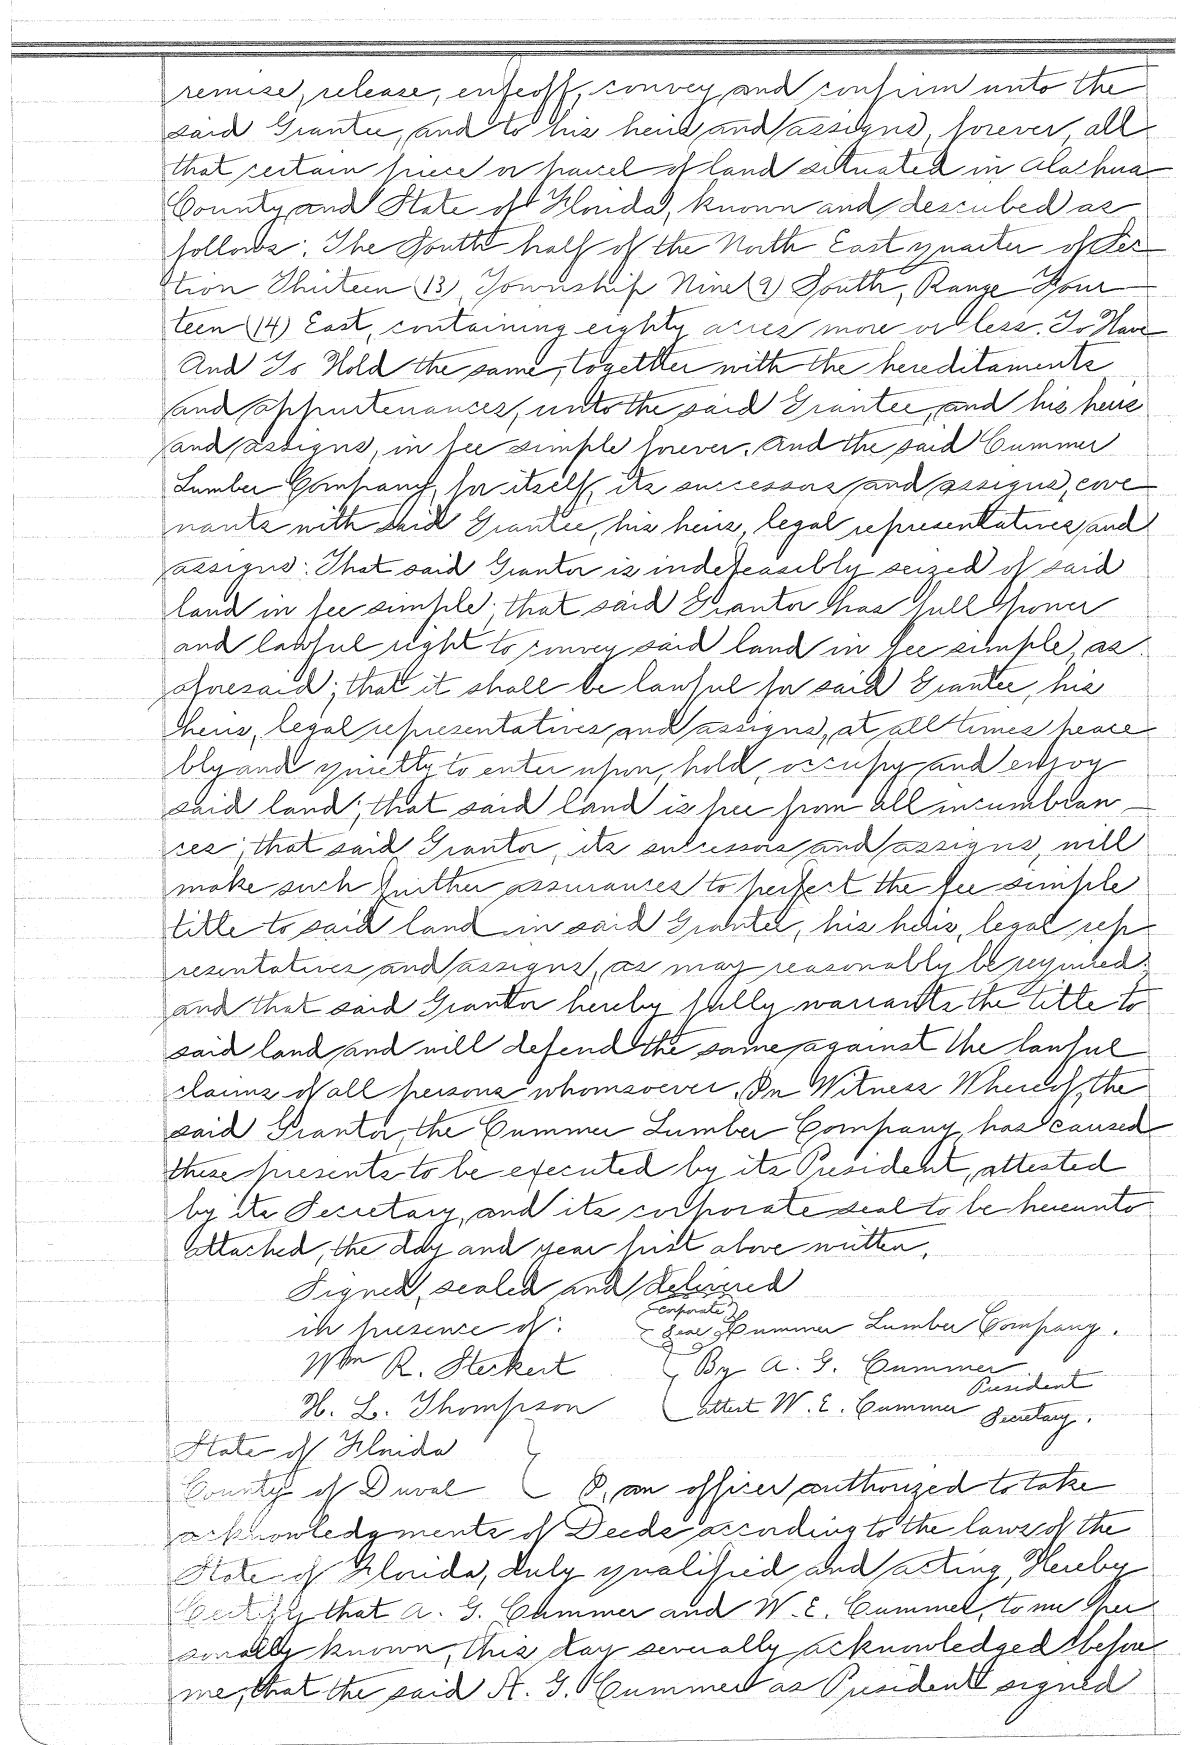 remise, release, enfeoff, convey and confirm unto the
said Grantee, and to his heirs and assigns, forever, all
that certain piece or parcel of land situated in Alachua
County and State of Florida, known and described as
follows: The South half of the North East quarter of Sec
tion Thirteen (13) Township Nine (9) South, Range Four
teen (14) East, containing eighty acres more or less. To Have
And To Hold the same, together with the hereditaments
and appurtenances, unto the said Grantee, and his heirs
and assigns, in fee simple forever. And the said Cummer
Lumber Company, for itself, its successors and assigns, cove
nants with said Grantee, his heirs, legal representatives and
assigns: That said Grantor is indefeasibly seized of said
land in fee simple; that said Grantor has full power
and lawful right to convey said land in fee simple, as
aforesaid; that it shall be lawful for said Grantee, his
heirs, legal representatives and assigns, at all times peace
bly and quietly to enter upon, hold, occupy and enjoy
said land; that said land is free from all incumbran
ces; that said Grantor, its successors and assigns, will
make such further assurances to perfect the fee simple
title to said land in said Grantee, his heirs, legal rep
resentatives and assigns, as may reasonably be required;
and that said Grantor hereby fully warrants the title to
said land and will defend the same against the lawful
claims of all persons whomsoever. In Witness Whereof, the
said Grantor, the Cummer Lumber Company, has caused
these presents to be executed by its President, attested
by its Secretary, and its corporate seal to be hereunto
attached, the day and year first above written.
Signed, sealed and delivered
in presence of: (corporate seal) Cummer Lumber Company.
Wm R. Steckert By A. G. Cummer President
H. L. Thompson attest W. E. Cummer Secretary.
State of Florida
County of Duval I, an officer authorized to take
acknowledgments of Deeds according to the laws of the
State of Florida, duly qualified and acting, Hereby
Certify that A. G. Cummer and W. E. Cummer, to me per
sonally known, this day severally acknowledged before
me, that the said A. G. Cummer as President signed